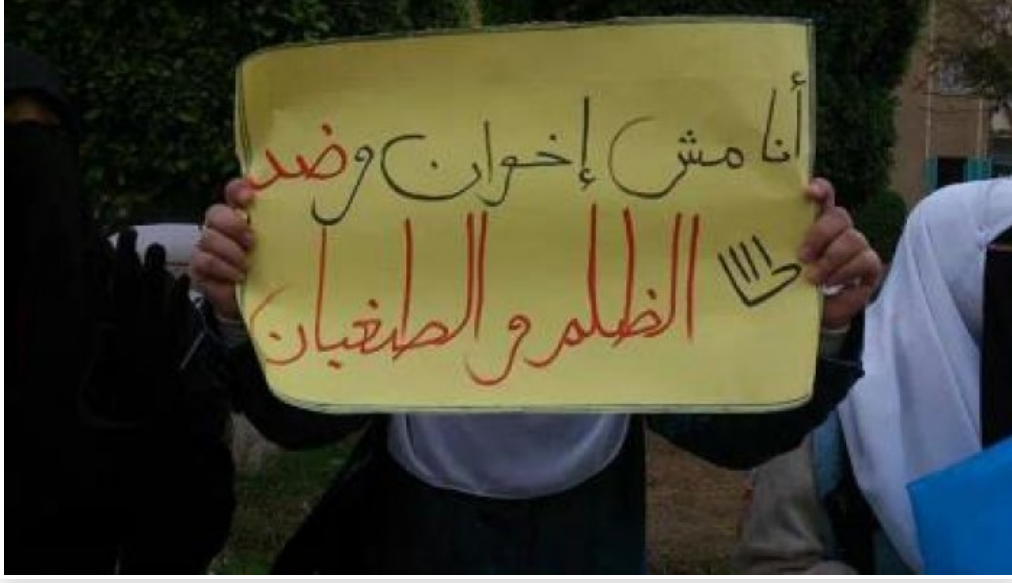 أنا مش إخوان وضد
الظلم والطغيان